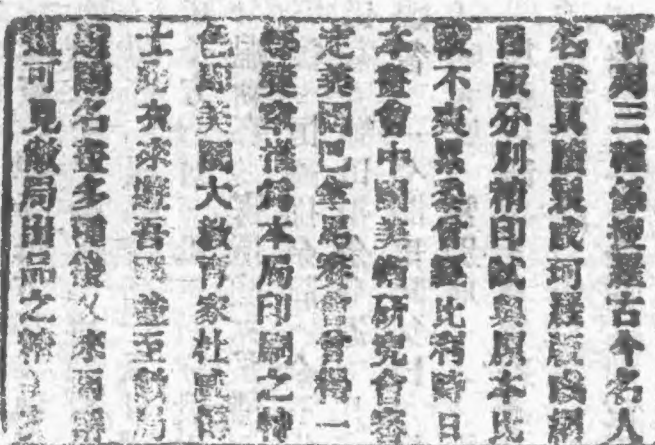 下列三種係極選古今名人
名畫真蹟製成珂羅版或網
目版分別精印試與原本比
較不爽累黍曾經比利時日
本畫會中國美術研究會審
定美國巴拿馬賽會曾得一
等獎章推爲本局印刷之特
色即美國大教育家杜威博
士此次來遊吾國並至敝局
選購名畫多種後又來函
可見敝局出品之精